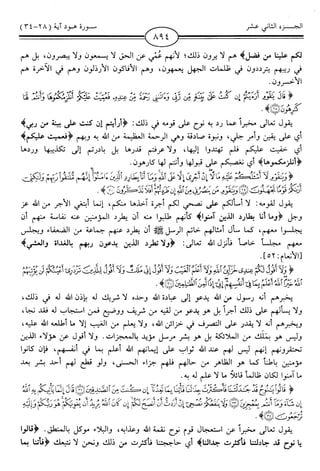 الجزء الثاني عشر
٨٩٤
سورة هود آية (٢٨-٣٤)
لكم علينا من فضل﴾ هم لا يرون ذلك؛ لأنهم عُمْي عن الحق لا يسمعون ولا يبصرون، بل هم
في ريبهم يترددون في ظلمات الجهل يعمهون، وهم الأفاكون الأرذلون وهم في الآخرة هم
الأخسرون.
﴿قَالَ يَقَوْمِ أَرَءَيْتُمْ إِن كُنتُ عَلَى بَيِّنَةٍ مِّن رَّبِّي وَءَاتَانِي رَحْمَةً مِّنْ عِندِهِ فَعُمِّيَتْ عَلَيْكُمْ أَنُلْزِمُكُمُوهَا وَأَنتُمْ لَهَا
كَارِهُونَ ﴾.
يقول تعالى مخبراً عما رد به نوح على قومه في ذلك: ﴿أرأيتم إن كنت على بينة من ربي﴾
أي على يقين وأمر جلي، ونبوة صادقة وهي الرحمة العظيمة من الله به وبهم ﴿فعميت عليكم﴾
أي خفيت عليكم فلم تهتدوا إليها، ولا عرفتم قدرها بل بادرتم إلى تكذيبها وردها
﴿أنلزمكموها﴾ أي نغصبكم على قبولها وأنتم لها كارهون.
﴿وَيَقَوْمِ لَا أَسْأَلُكُمْ عَلَيْهِ مَالًا إِنْ أَجْرِيَ إِلَّا عَلَى اللَّهِ وَمَا أَنَا بِطَارِدِ الَّذِينَ آمَنُوا إِنَّهُم مُّلَاقُوا رَبِّهِمْ وَلَكِنِّي
أَرَاكُمْ قَوْمًا تَجْهَلُونَ وَيَقَوْمِ مَن يَنصُرُنِي مِنَ اللَّهِ إِن طَرَدتُّهُمْ أَفَلَا تَذَكَّرُونَ ﴾.
يقول لقومه: لا أسألكم على نصحي لكم أجرة آخذها منكم، إنما أبتغي الأجر من الله عز
وجل ﴿وما أنا بطارد الذين آمنوا﴾ كأنهم طلبوا منه أن يطرد المؤمنين عنه نفاسة منهم أن
يجلسوا معهم، كما سأل أمثالهم خاتم الرسل ﷺ أن يطرد عنهم جماعة من الضعفاء ويجلس
معهم مجلساً خاصاً فأنزل الله تعالى: ﴿ولا تطرد الذين يدعون ربهم بالغداة والعشي﴾
[الأنعام: ٥٢].
﴿وَلَا أَقُولُ لَكُمْ عِندِي خَزَائِنُ اللَّهِ وَلَا أَعْلَمُ الْغَيْبَ وَلَا أَقُولُ إِنِّي مَلَكٌ وَلَا أَقُولُ لِلَّذِينَ تَزْدَرِي أَعْيُنُكُمْ لَن يُؤْتِيَهُمُ
اللَّهُ خَيْرًا اللَّهُ أَعْلَمُ بِمَا فِي أَنفُسِهِمْ إِنِّي إِذًا لَّمِنَ الظَّالِمِينَ ﴾.
يخبرهم أنه رسول من الله يدعو إلى عبادة الله وحده لا شريك له بإذن الله له في ذلك،
ولا يسألهم على ذلك أجراً بل هو يدعو من لقيه من شريف ووضيع فمن استجاب له فقد نجا،
ويخبرهم أنه لا يقدر على التصرف في خزائن الله، ولا يعلم من الغيب إلا ما أطلعه الله عليه،
وليس هو بملك من الملائكة بل هو بشر مرسل مؤيد بالمعجزات. ولا أقول عن هؤلاء الذين
تحتقرونهم إنهم ليس لهم عند الله ثواب على إيمانهم الله أعلم بما في أنفسهم، فإن كانوا
مؤمنين باطناً كما هو الظاهر من حالهم فلهم جزاء الحسنى، ولو قطع لهم أحد بشر بعد
ما آمنوا لكان ظالماً قائلاً ما لا علم له به.
﴿قَالُوا يَا نُوحُ قَدْ جَادَلْتَنَا فَأَكْثَرْتَ جِدَالَنَا فَأْتِنَا بِمَا تَعِدُنَا إِن كُنتَ مِنَ الصَّادِقِينَ قَالَ إِنَّمَا يَأْتِيكُم بِهِ اللَّهُ
إِن شَاءَ وَمَا أَنتُم بِمُعْجِزِينَ وَلَا يَنفَعُكُمْ نُصْحِي إِنْ أَرَدتُّ أَنْ أَنصَحَ لَكُمْ إِن كَانَ اللَّهُ يُرِيدُ أَن يُغْوِيَكُمْ هُوَ رَبُّكُمْ وَإِلَيْهِ
تُرْجَعُونَ ﴾.
يقول تعالى مخبراً عن استعجال قوم نوح نقمة الله وعذابه، والبلاء موكل بالمنطق. ﴿قالوا
يا نوح قد جادلتنا فأكثرت جدالنا﴾ أي حاججتنا فأكثرت من ذلك ونحن لا نتبعك ﴿فأتنا بما